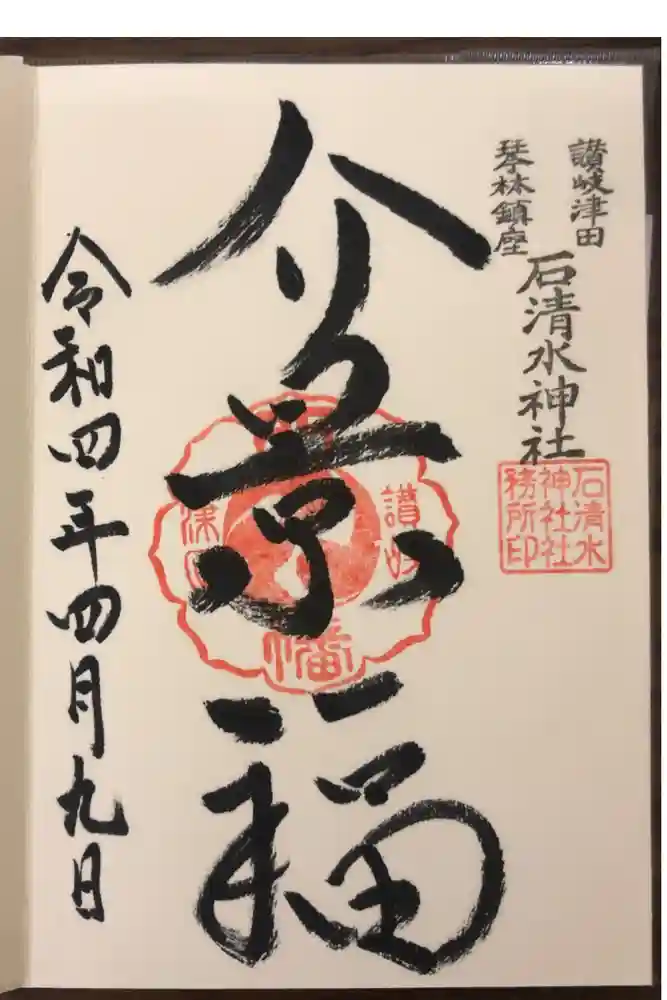 讃岐津田
琴林鎮座
石清水神社
石清水
神社社
務所印
介景福
讃岐
津田
幡
令和四年四月九日